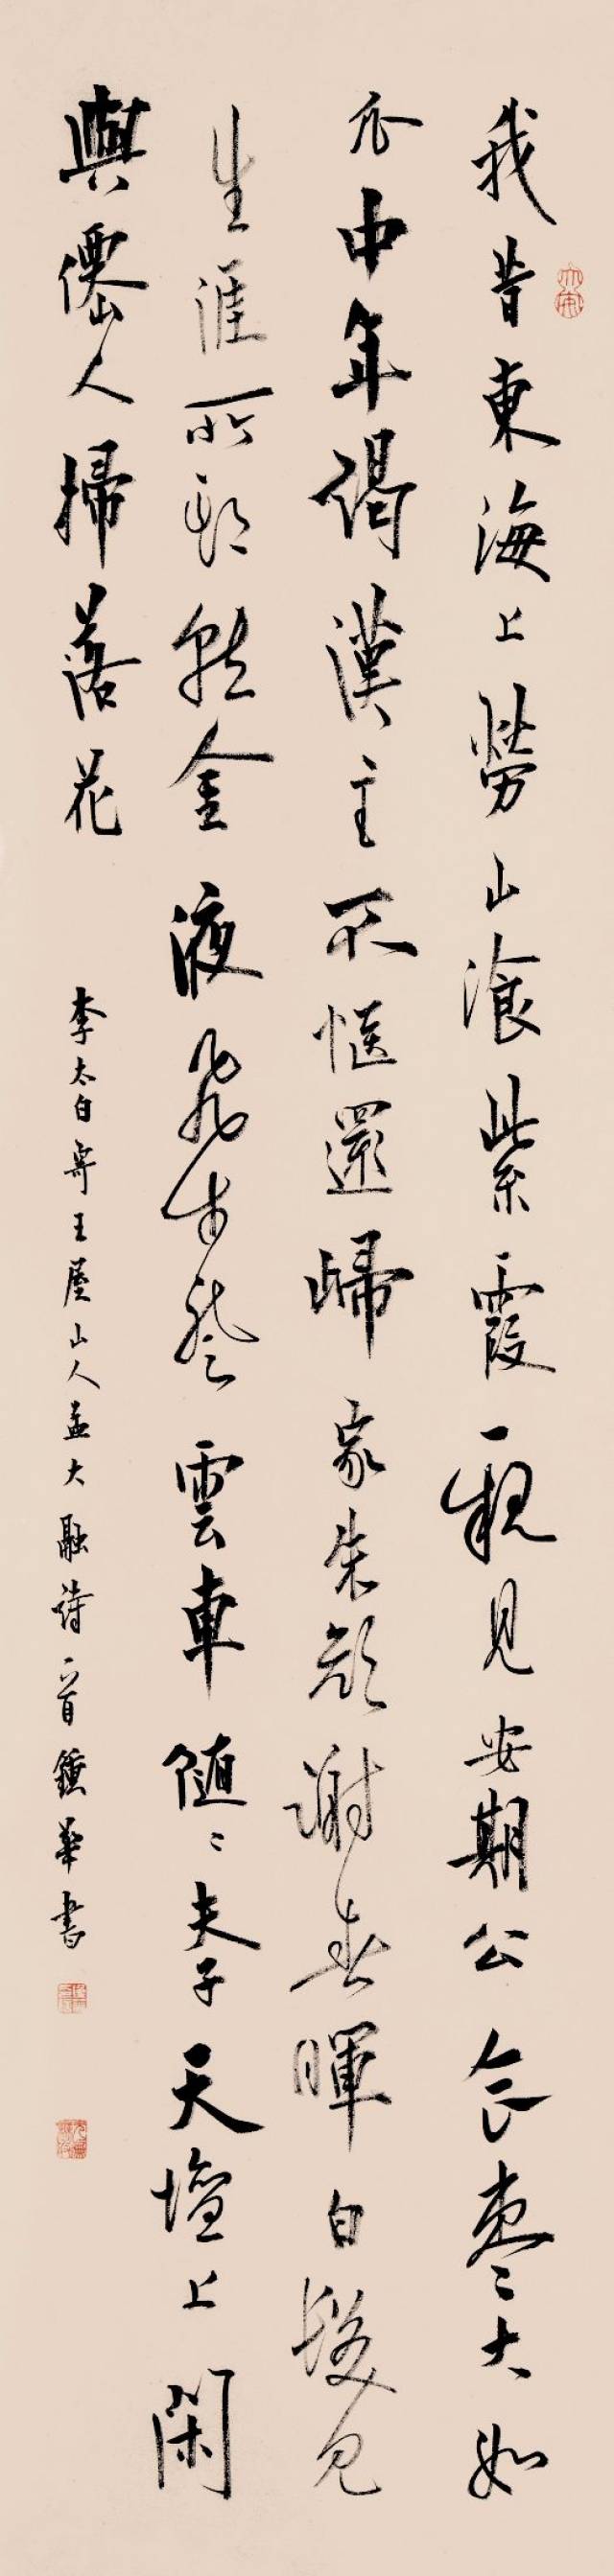 我昔東海上勞山湌紫霞親見安期公食棗大如
瓜中年謁漢主不愜還歸家朱顏謝春暉白髮見
生涯所期就金液飛步登雲車隨〻夫子天壇上閑
與僊人掃落花
李太白寄王屋山人孟大融詩一首鍾華書